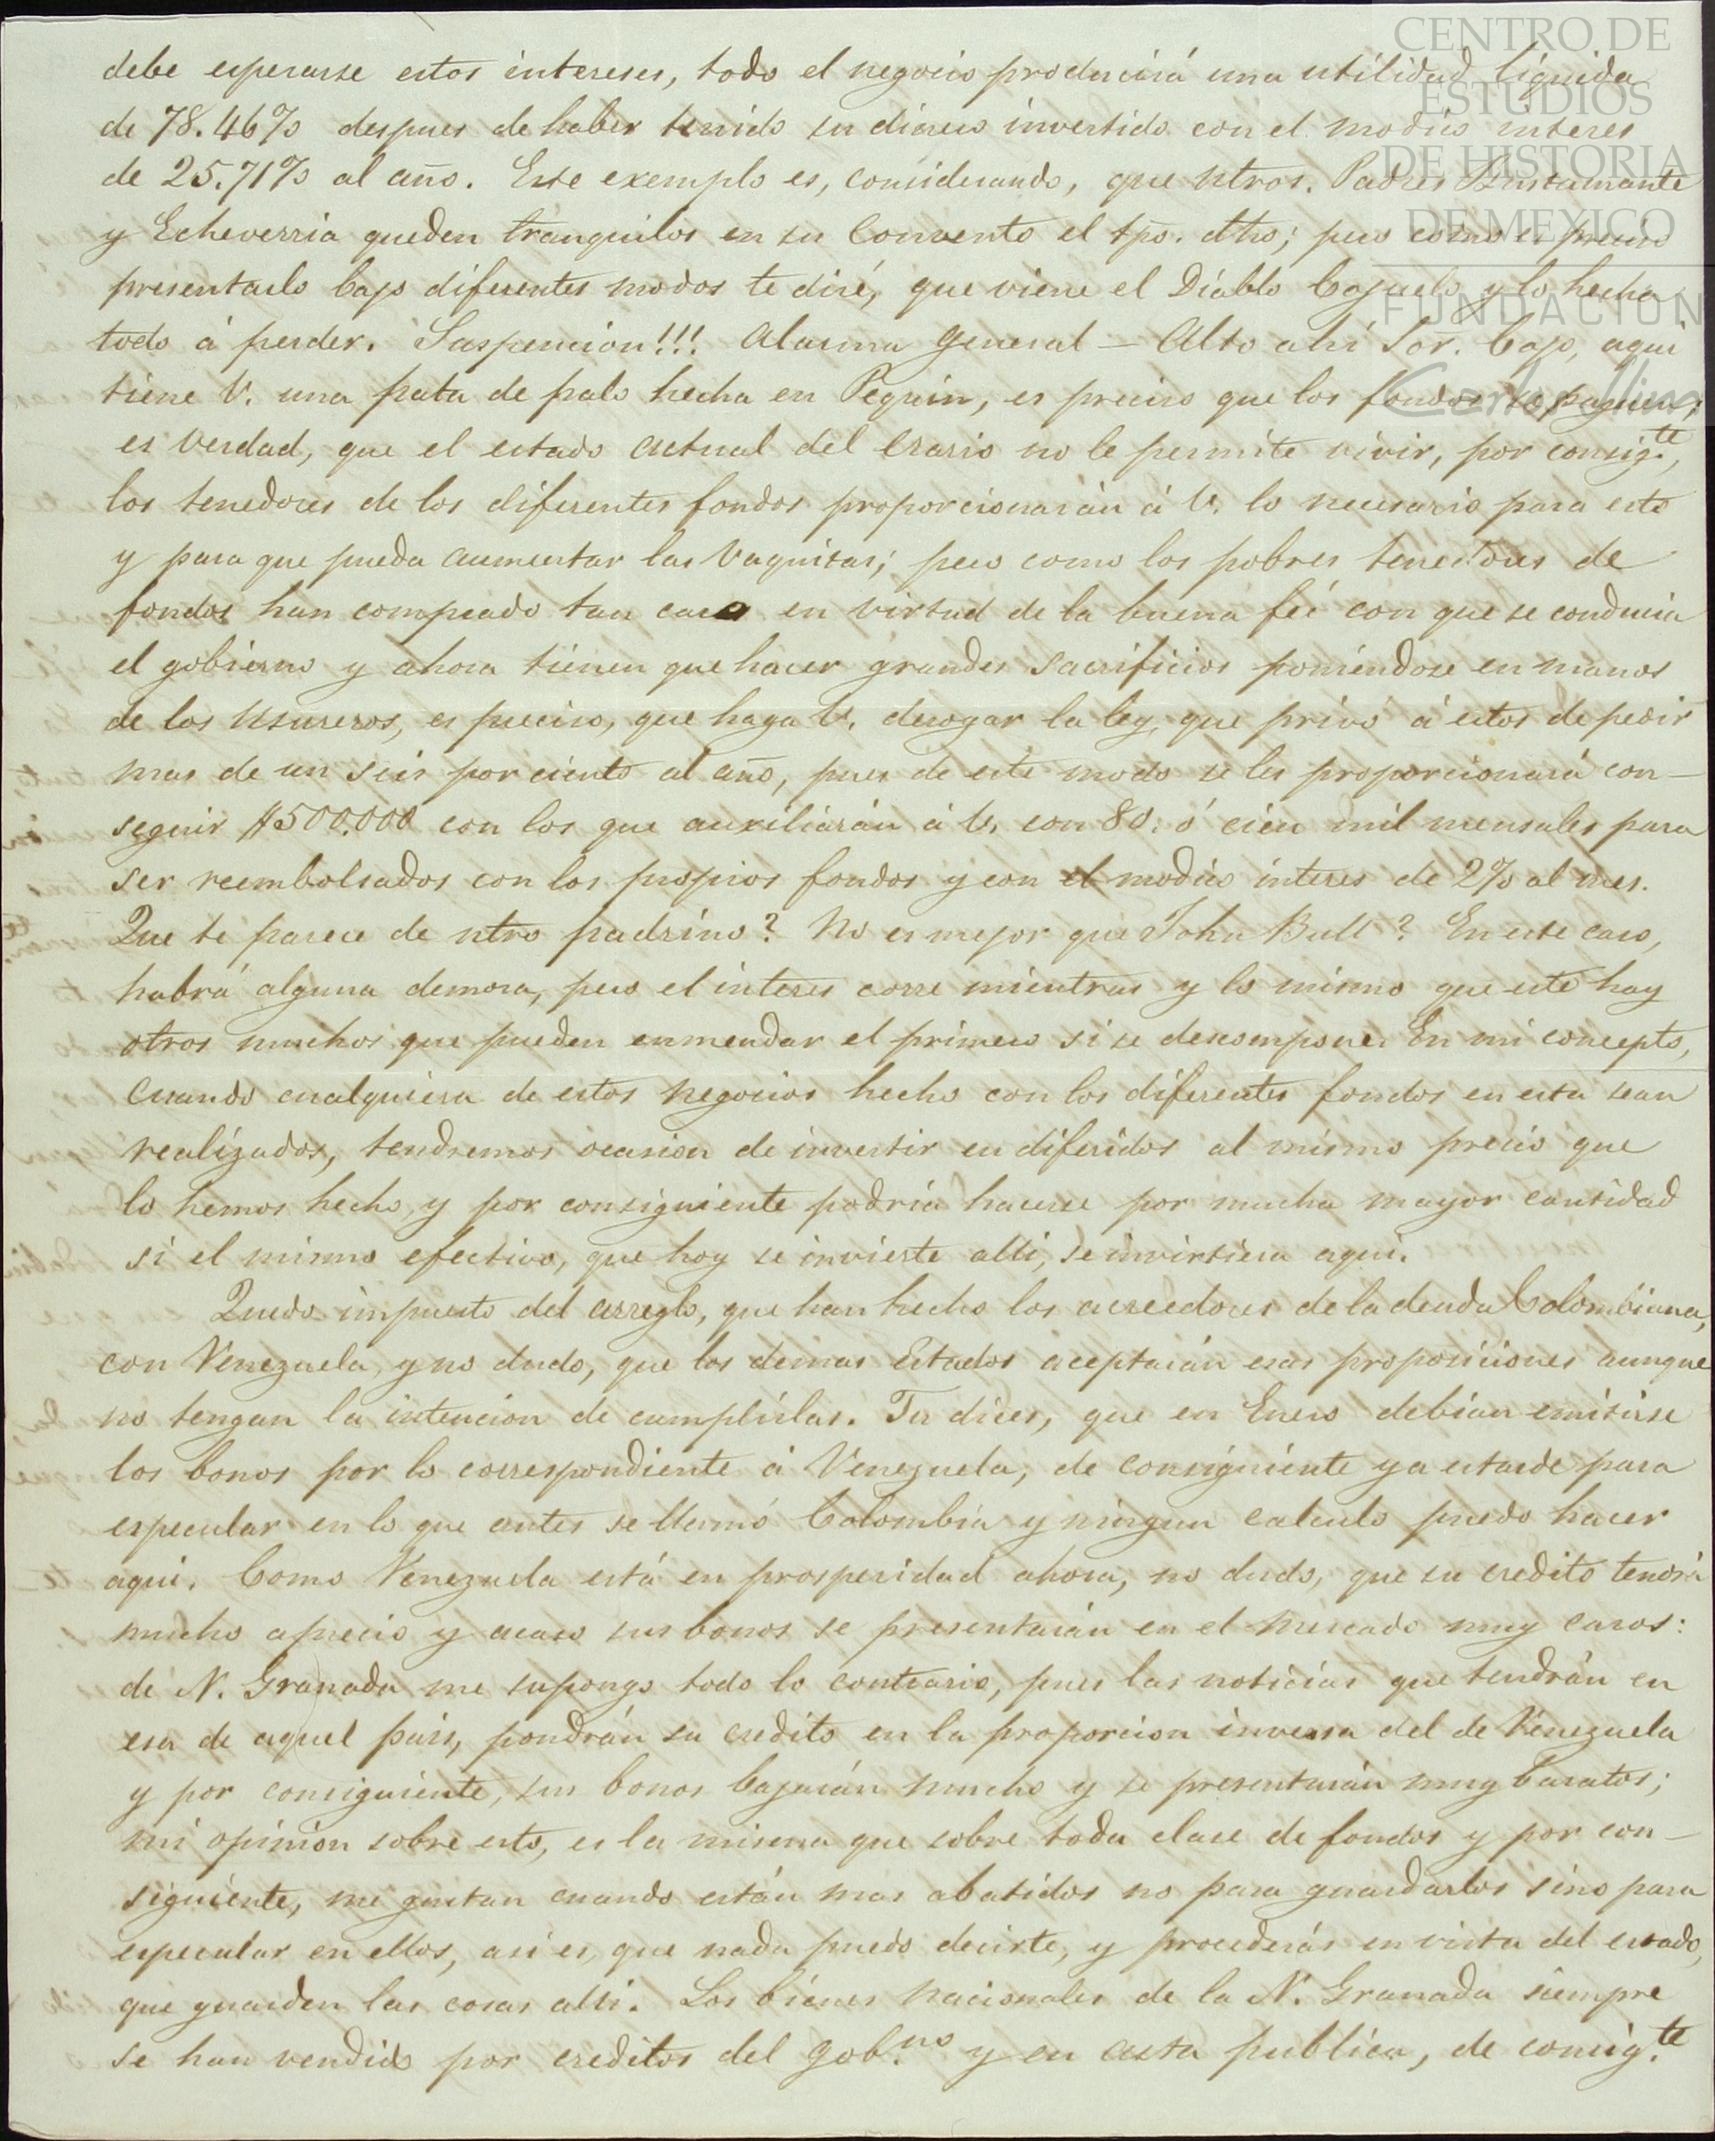 debe esperarse estos intereses, todo el negocio producirá una utilidad líquida
de 78.46% despues de haber tenido su dinero invertido con el modico interes
de 25.71% al año. Este exemplo es, considerando, que ntros. Padres Bustamante
y Echeverria queden tranquilos en su Convento el tpo. dho; pero como es preciso
presentarlo bajo diferentes modos te diré, que viene el Diáblo Cojuelo y lo hecha
todo á perder. Suspencion!!! Alarma general — Alto ahí Sor. Cojo, aqui
tiene V. una pata de palo hecha en Pequin, es preciso que los fondos se paguen;
es verdad, que el estado actual del Erario no le permite vivir, por consigte.,
los tenedores de los diferentes fondos proporcionarán á V. lo necesario para esto
y para que pueda aumentar las Vaquitas; pero como los pobres tenedores de
fondos han comprado tan caro en virtud de la buena feé con que se conducia
el gobierno y ahora tienen que hacer grandes sacrificios poniendose en manos
de los Usureros, es preciso, que haga V. derogar la ley, que privó á estos de pedir
mas de un seis por ciento al año, pues de este modo se les proporcionará con—
seguir $500.000 con los que auxiliarán á V. con 80. ó cien mil mensales para
ser reembolsados con los propios fondos y con el modico interes de 2% al mes.
Que te parece de ntro padrino? No es mejor que John Bull? En este caso,
habrá alguna demora, pero el interes corre mientras y lo mismo que este hay
otros muchos que pueden enmendar el primero si se descompone. En mi concepto,
cuando cualquiera de estos negocios hecho con los diferentes fondos en esta sean
realizados, tendremos ocasion de invertir en diferidos al mismo precio que
lo hemos hecho, y por consiguiente podria hacerse por mucha mayor cantidad
si el mismo efectivo, que hoy se invierte alli, se invirtiera aqui.
Quedo impuesto del arreglo, que han hecho los acreedores de la deuda Colombiana,
con Venezuela, y no dudo, que los demas Estados aceptarán esas proposiciones aunque
no tengan la intencion de cumplirlas. Tu dices, que en Enero debian emitirse
los bonos por lo correspondiente á Venezuela, de consiguiente ya es tarde para
especular en lo que antes se llamó Colombia y ningun calculo puedo hacer
aqui. Como Venezuela está en prosperidad ahora, no dudo, que su credito tendrá
mucho aprecio y acaso sus bonos se presentarán en el mercado muy caros:
de N. Granada me supongo todo lo contrario, pues las noticias que tendrán en
esa de aquel pais, pondrán su credito en la proporcion inversa del de Venezuela
y por consiguiente, sus bonos bajarán mucho y se presentarán muy baratos;
mi opinion sobre esto, es la misma que sobre toda clase de fondos y por con—
siguiente, me gustan cuando están mas abatidos no para guardarlos sino para
especular en ellos, asi es, que nada puedo decirte, y procederás en vista del estado,
que guarden las cosas alli. Los bienes nacionales de la N. Granada siempre
se han vendido por creditos del gobno. y en asta publica, de consigte.
CENTRO DE
ESTUDIOS
DE HISTORIA
DE MEXICO
FUNDACION
Carlos Slim